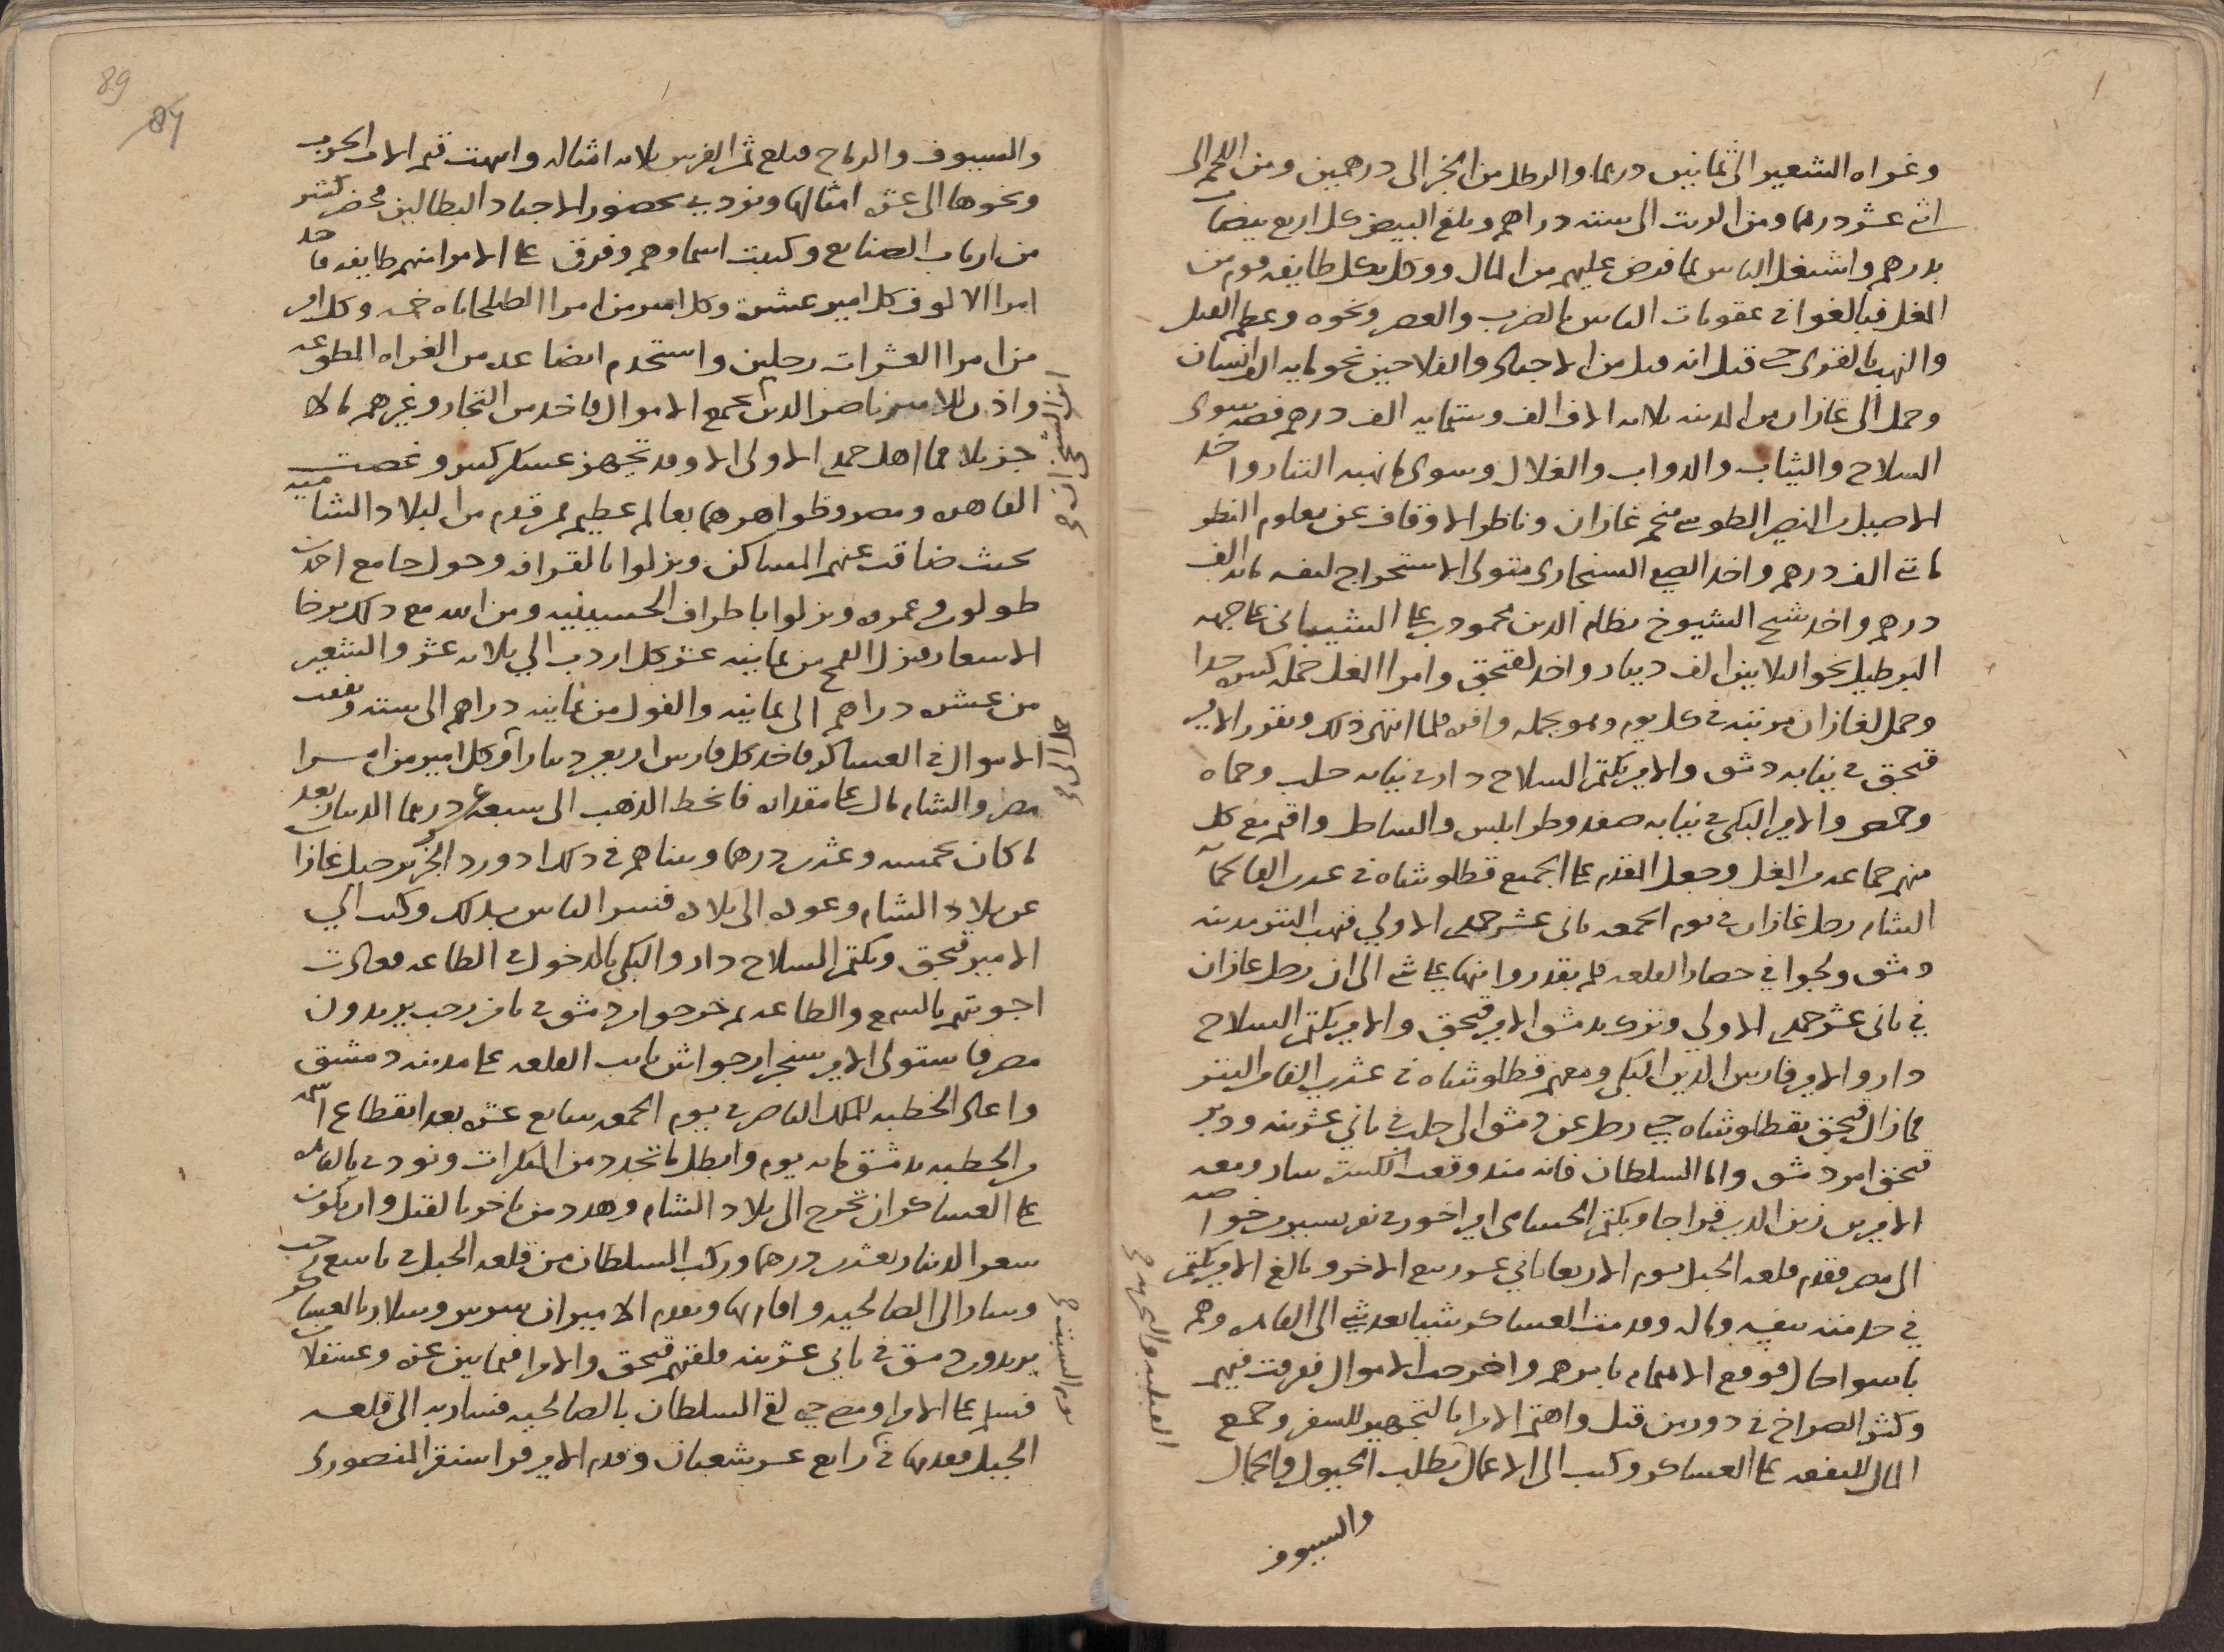 وغراه الشعير الى ثمانين درهما والرطل من الخبز الى درهمين ومن اللحم الى
اثنى عشر درهما ومن الزيت الى ستة دراهم وبلغ البيض كل اربع بيضات
بدرهم واشتغل الناس بما فرض عليهم من المال ووكل بكل طايفه قوم من
المغل فبالغوا فى عقوبات الناس بالضرب والعصر ونحوه وعظم القتل
والنهب بالقرى حتى قيل انه قتل من الاجناد والفلاحين نحو مايه الف انسان
وحمل الى غازان من المدينه ثلاثه الاف الف وستمايه الف درهم فضه سوى
السلاح والثياب والدواب والغلال وسوى ما نهبه التتار واخد
الاصيل بن النصير الطوسى منجم غازان وناظر الاوقاف عن معلوم النظر
مايتى الف درهم واخد الصفى السنجارى متولى الاستخراج لنفسه مايه الف
درهم واخد شيخ الشيوخ نظام الدين محمود بن على الشيبانى على جهه
البرطيل نحو الثلاثين الف دينار واخد لقبجق وامرا المغل جمله كبيره جدا
وحمل لغازان مرتبه فى كل يوم وهو بجمله وافره فلما انتهى ذلك وتقرر الامير
قبجق فى نيابه دمشق والامير بكتمر السلاح دار فى نيابه حلب وحماه
وحمص والامير البكى فى نيابه صفد وطرابلس والساحل واقيم مع كل
منهم جماعه من المغل وجعل المقدم على الجميع قطلوشاه فى عده الف
الشام رحل غازان فى يوم الجمعه ثانى عشر جمدى الاولى فنهب التتر مدينه
دمشق ولجوا فى حصار القلعه فلم يقدروا منها على شى الى ان رحل غازان
فى ثانى عشر جمدى الاولى ونزل بدمشق الامير قبجق والامير بكتمر السلاح
دار والامير فارس الدين البكى ومعهم قطلوشاه فى عشرين الفا من التتر
فما زال قبجق بقطلوشاه حتى رحل عن دمشق الى حلب فى ثانى عشرينه ودبر
قبجق امر دمشق واما السلطان فانه منذ وقعت الكسره سار ومعه
الاميرين زين الدين قراجا وبكتمر الحسامى امير اخور فى نفر يسير من خواصه
الى مصر فقدم قلعه الجبل يوم الاربعا ثانى عشر ربيع الاخر وبالغ الامير بكتمر
فى خدمته بنفسه وماله وقدمت العساكر شيا بعد شى الى القاهره وهم
باسوا حال فوقع الاهتمام بامرهم واخرجت الاموال ففرقت فيهم
وكثر الصراخ فى دور من قتل واهتم الامرا بالتجهيز للسفر وجمع
المال للنفقه على العساكر وكتب الى الاعمال بطلب الخيول والجمال
والسيوف
والسيوف والرماح فبلغ ثمن الفرس ثلاثه امثاله وانتهت قيم الات الحرب
ونحوها الى عشره امثالها ونودى بحضور الاجناد البطالين فحضر كثير
من ارباب الصنايع وكتبت اسماوهم وفرق على الامرا منهم طايفه فاخد
امرا الالوف كل امير عشره وكل امير من امرا الطبلخاناه خمسه وكل امير
من امرا العشرات رجلين واستخدم ايضا عده من الغزاه المطوعه
واذن للامير ناصر الدين بجمع الاموال فاخد من التجار وغيرهم مالا
جزيلا فما اهل جمدى الاولى الا وقد تجهز عسكر كبير وغصت
القاهره ومصر وظواهرهما بعالم عظيم ممن قدم من البلاد الشاميه
بحيث ضاقت عنهم المساكن ونزلوا بالقرافه وحول جامع احمد بن
طولون وعمره ونزلوا باطراف الحسينيه ومن الله مع ذلك برخا
الاسعار فنزل القمح من ثمانيه عشر كل اردب الى ثلاثه عشر والشعير
من عشره دراهم الى ثمانيه والفول من ثمانيه دراهم الى سته ونفقت
الاموال فى العساكر فاخد كل فارس اربعين دينارا وكل امير من امرا
مصر والشام مال على مقداره فانحط الذهب الى سبعه عشر درهما الدينار بعد
ما كان بخمسه وعشرين درهما وبينا هم فى ذلك اذ ورد الخبر برحيل غازان
عن بلاد الشام وعوده الى بلاده فسر الناس بذلك وكتب الى
الامير قبجق وبكتمر السلاح دار والبكى بالدخول فى الطاعه فعادت
اجوبتهم بالسمع والطاعه ثم خرجوا من دمشق فى ثامن رجب يريدون
مصر فاستولى الامير سنجر ارجواش نايب القلعه على مدينه دمشق
واعاد الخطبه للملك الناصر فى يوم الجمعه سابع عشره بعد انقطاع اسمه
من الخطبه بدمشق مايه يوم وابطل ما تجدد من المنكرات ونودى بالقاهره
على العساكر ان تخرج الى بلاد الشام وهدد من تاخر بالقتل وان يكون
سعر الدينار بعشرين درهما وركب السلطان من قلعه الجبل فى تاسع رجب
وسار الى الصالحيه واقام بها وتقدم الاميران بيبرس وسلار بالعساكر
يريدون دمشق فى ثانى عشرينه فلقيهم قبجق والامرا فيما بين غزه وعسقلان
فسلم على الامرا ومضى حتى لقى السلطان بالصالحيه فسار به الى قلعه
الجبل فقدمها فى رابع عشر شعبان وقدم الامير قراسنقر المنصورى